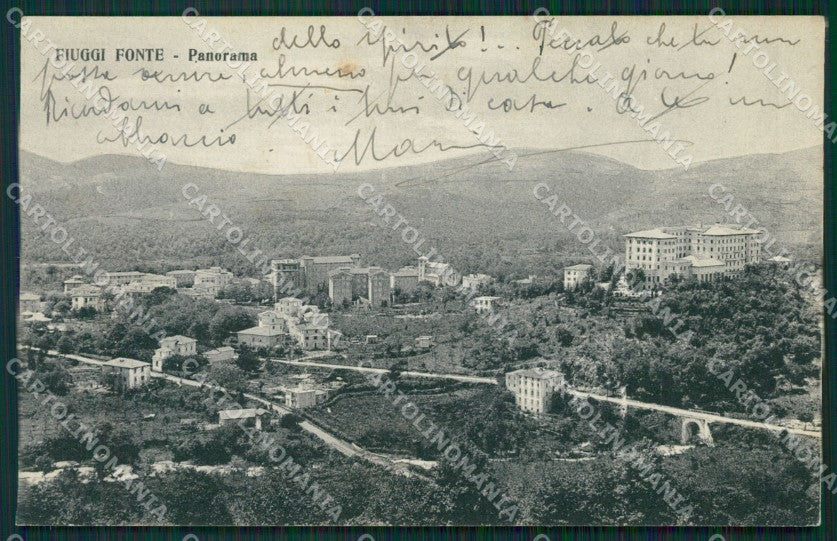 FIUGGI FONTE - Panorama
dello spirito!.. Peccato che tu non
possa venire almeno per qualche giorno!
Ricordami a tutti i tuoi di casa. A te un
abbraccio.
CARTOLINOMANIA